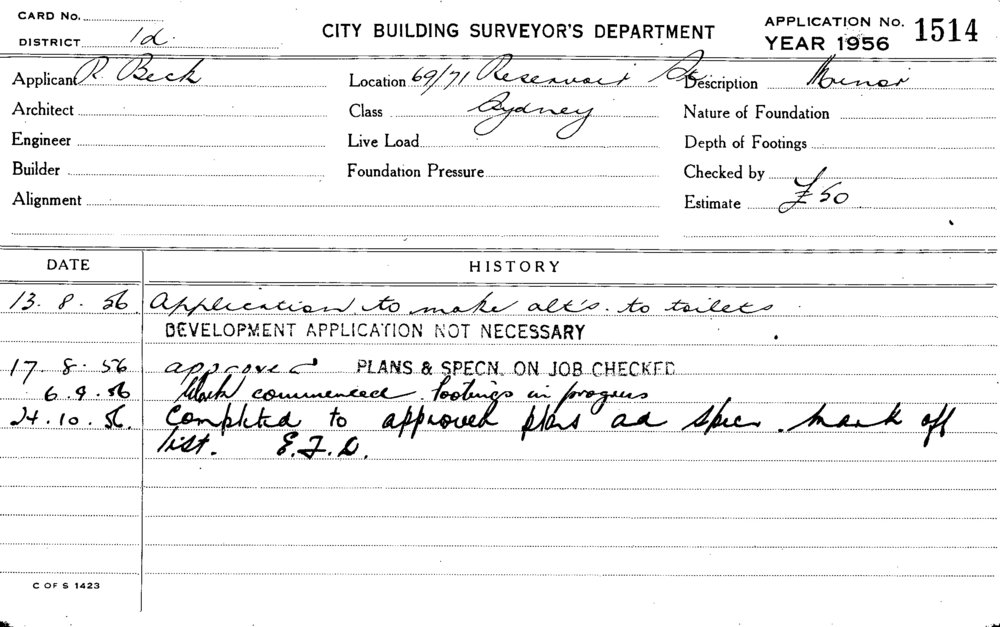 CARD No.
DISTRICT 1d.
CITY BUILDING SURVEYOR'S DEPARTMENT
APPLICATION No. 1514
YEAR 1956
Applicant R. Beck
Location 69/71 Reservoir St
Description Minor
Architect
Class Sydney
Nature of Foundation
Engineer
Live Load
Depth of Footings
Builder
Foundation Pressure
Checked by
Alignment
Estimate £50
DATE HISTORY
13. 8. 56 Application to make alt's. to toilets
DEVELOPMENT APPLICATION NOT NECESSARY
17. 8. 56 approved PLANS & SPECN. ON JOB CHECKED
6. 9. 56 Work commenced footings in progress
24. 10. 56. Completed to approved plans ad specn. mark off
list. E.J.D.
C OF S 1423